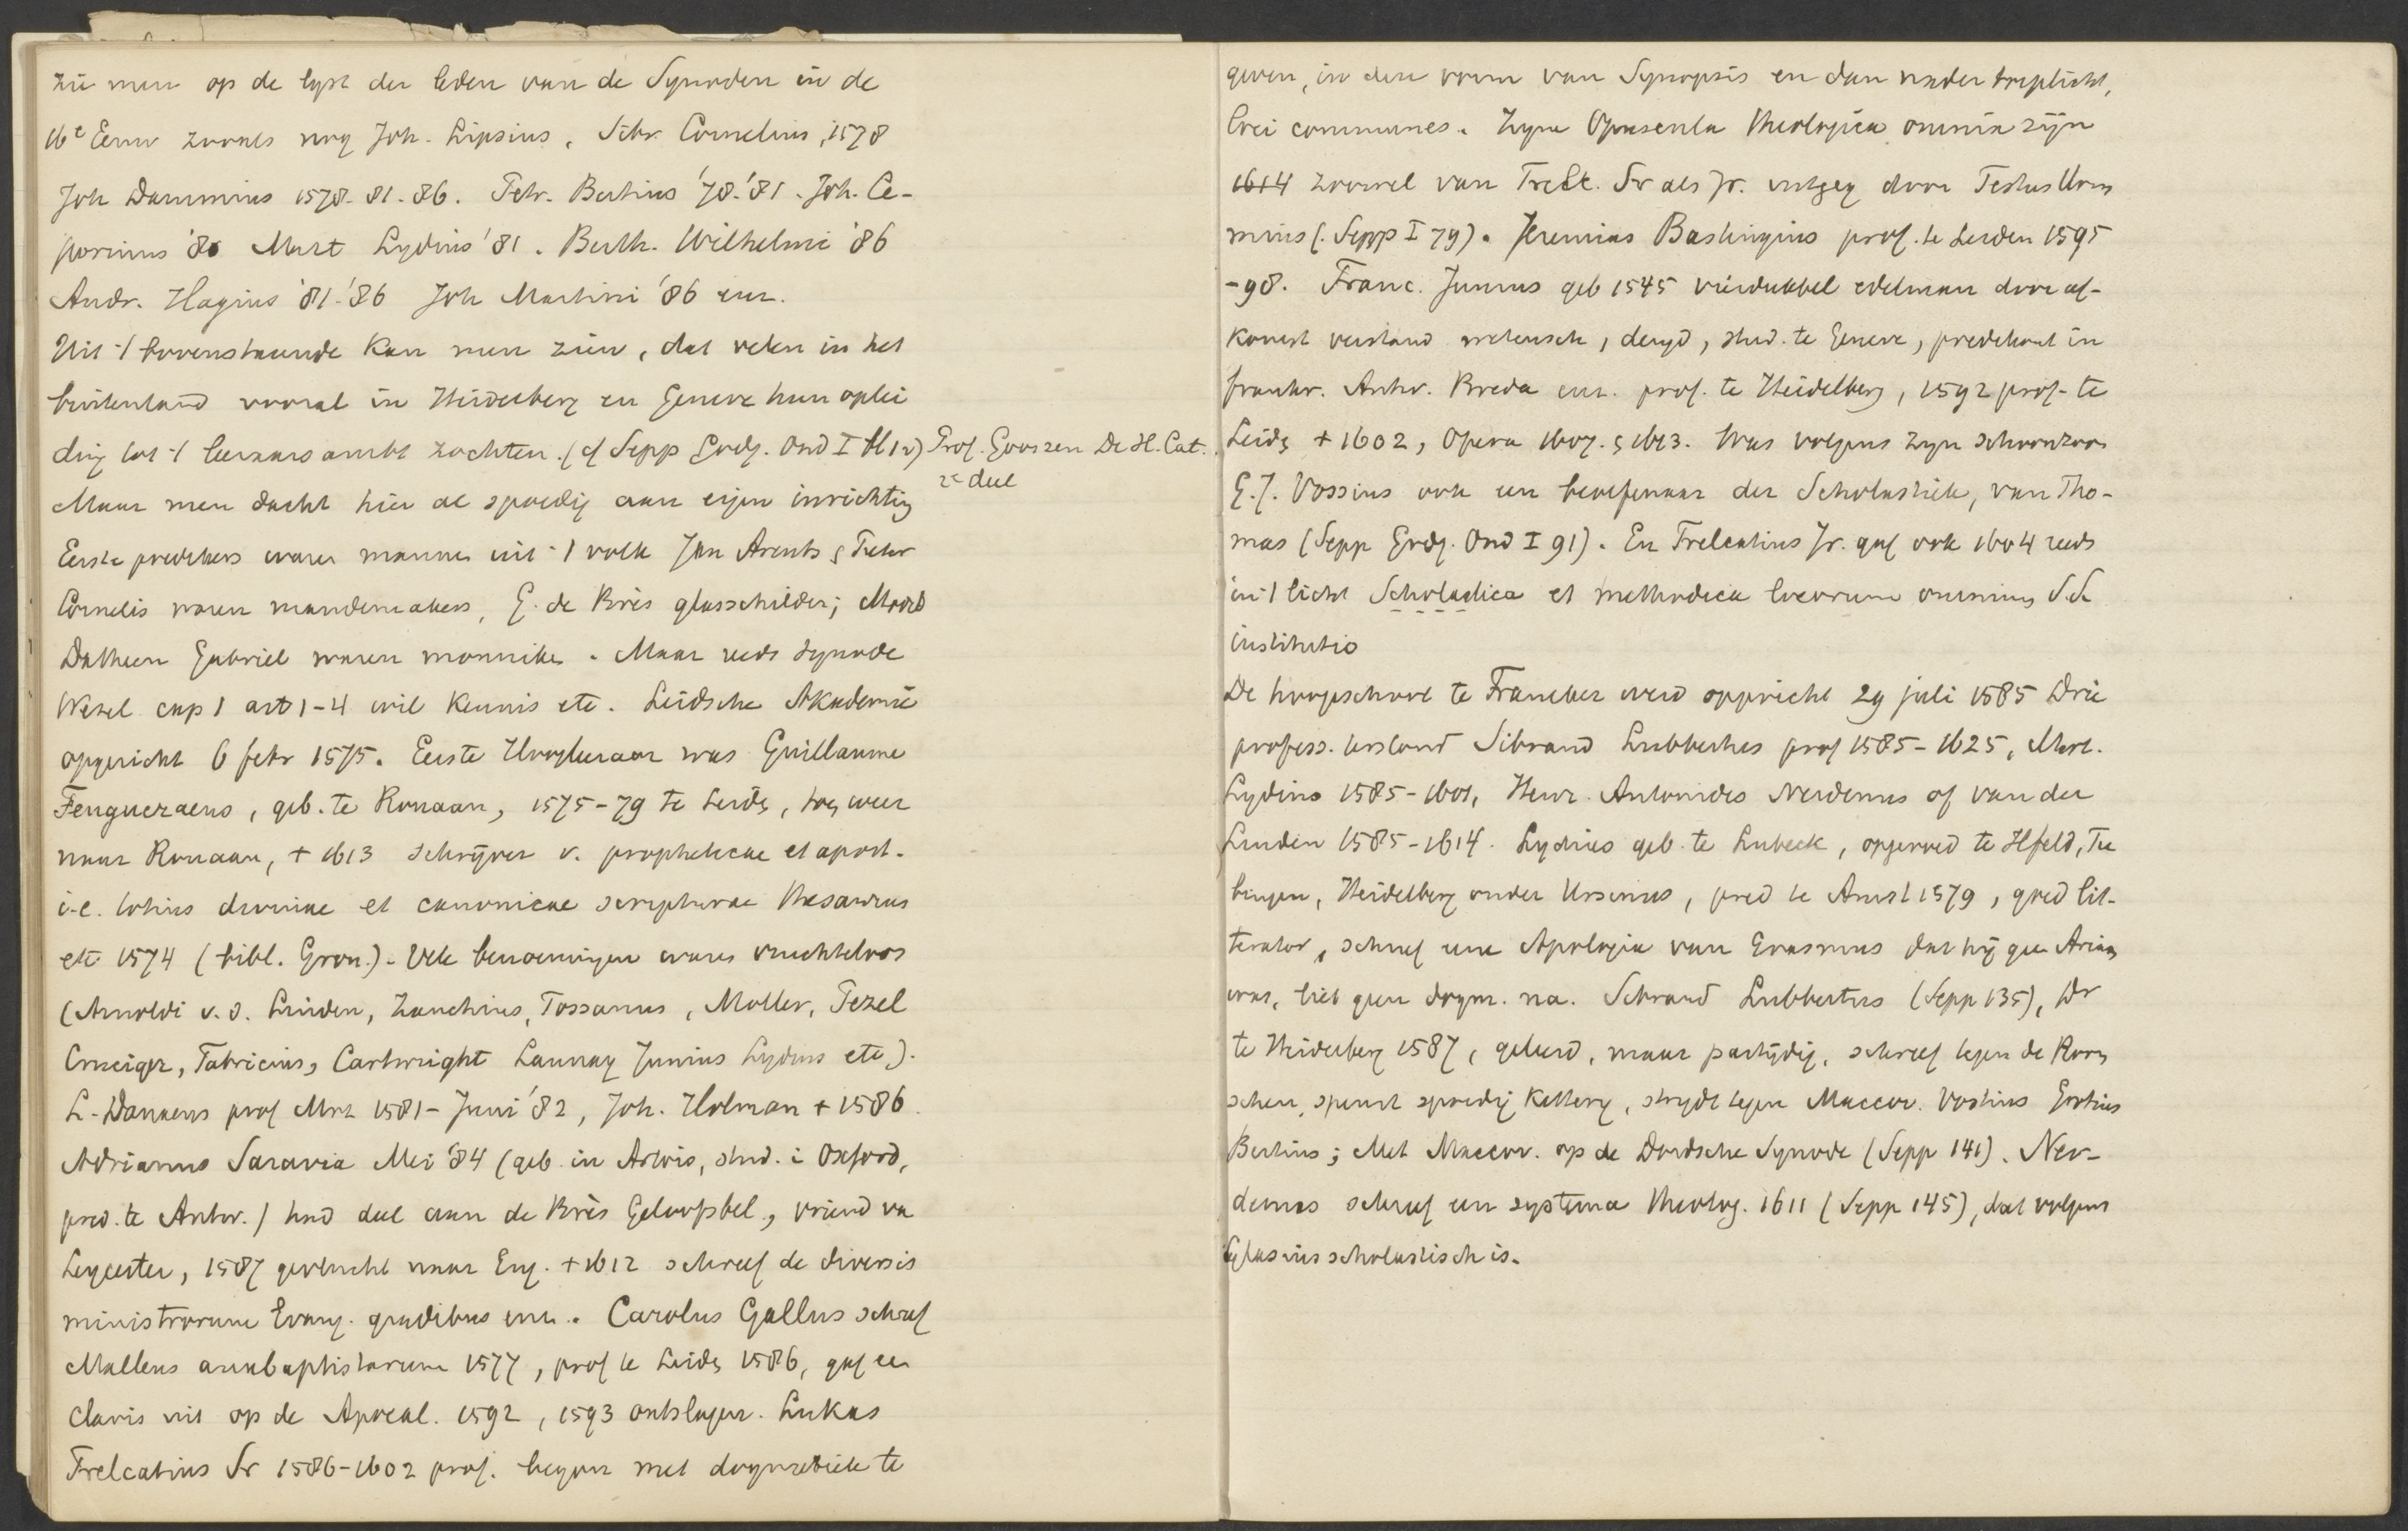 zie men op de lyst der leden van de Synoden in de
16e Eeuw zooals nog Joh. Lipsius, Sibr. Cornelius, 1578
Joh Dammius 1578. 81. 86. Petr. Bertius '78.'81. Joh. Ce-
porinus '86 Mart Lydius '81. Barth. Wilhelmi '86
Andr. Hagius '81.'86 Joh Martini '86 enz.
Uit 't bovenstaande kan men zien, dat velen in het
buitenland vooral in Heidelberg en Geneve hun oplei
ding tot 't leeraarsambt zochten. (cf Sepp Godg. Ond I bl 12) Prof. Gooszen De H. Cat.
2e deel
Maar men dacht hier al spoedig aan eigen inrichting
Eerste predikers waren mannen uit 't volk Jan Arents & Pieter
Cornelis waren mandemakers, G. de Brès glasschilder;
Datheen Gabriel waren monniken. Maar reeds synode
Wezel cap 1 art 1-4 wil kennis etc. Leidsche Akademie
opgericht 6 febr 1575. Eerste Hoogleeraar was Guillaume
Feugueraeus, geb. te Rouaan, 1575-79 te Leide, toen weer
naar Rouaan, + 1613 schrijver v. propheticae et apost.
i.e. totius divinae et canonicae scripturae thesaurus
etc 1574 (bibl. Gron.). Vele benoemingen waren vruchteloos
(Arnoldi v. d. Linden, Zanchius, Tossanus, Moller, Pezel
Cruciger, Fabricius, Cartwright Launay Junius Lydius etc).
L. Danaeus prof Mrt 1581- Juni '82, Joh. Holman + 1586.
Adrianus Saravia Mei '84 (geb. in Artois, stud. i Oxford,
pred. te Antw.) had deel aan de Brès Geloofsbel., vriend va
Leycester, 1587 gevlucht naar Eng. + 1612 schreef de diversis
ministrorum Evang. gradibus enz. Carolus Gallus schreef
Malleus anabaptistarum 1577, prof te Leide 1586, gaf een
clavis uit op de Apocal. 1592, 1593 ontslagen. Lukas
Trelcatius Sr 1586-1602 prof. begon met dogmatiek te
geven, in den vorm van Synopsis en dan nader
loci communes. Zyne Opuscula theologica omnia zijn
1614 zoowel van Trelc. Sr als Jr. uitgeg door Festus Hom
mius (. Sepp I 79). Jeremias Bastingius prof. te Leiden 1595
-98. Franc. Junius geb 1545 vierdubbel edelman door af-
komst verstand wetensch, deugd, stud. te Geneve, predikant in
frankr. Antw. Breda enz. prof. te Heidelberg, 1592 prof. te
Leide + 1602, Opera 1607. & 1613. Was volgens zyn schoonzoon
G. J. Vossius ook een beoefenaar der Scholastiek, van Tho-
mas (Sepp Godg. Ond I 91). En Trelcatius Jr. gaf ook 1604 reeds
in 't licht Scholastica et methodica locorum omnium S.S.
institutio
De hoogeschool te Franeker werd opgericht 29 juli 1585 Drie
profess. terstond Sibrand Lubbertus prof 1585-1625, Mart.
Lydius 1585-1601, Henr. Antonides Nerdenus of van der
Linden 1585-1614. Lydius geb. te Lubeck, opgevoed te Ilfeld, Tu
bingen, Heidelberg onder Ursinus, pred te Amst 1579, goed lit-
terator, schreef eene Apologia van Erasmus dat hij geen Ariaan
was, liet geen dogm. na. Sibrand Lubbertus (Sepp 135), Dr
te Heidelberg 1587, geleerd, maar partijdig, schreef tegen de Room
schen, spoedig kettery, strydt tegen Maccov. Vorstius Grotius
Bertius; Met Maccov. op de Dordsche Synode (Sepp 141). Ner-
denus schreef een systema theolog. 1611 (Sepp 145), dat volgens
Glasius scholastisch is.